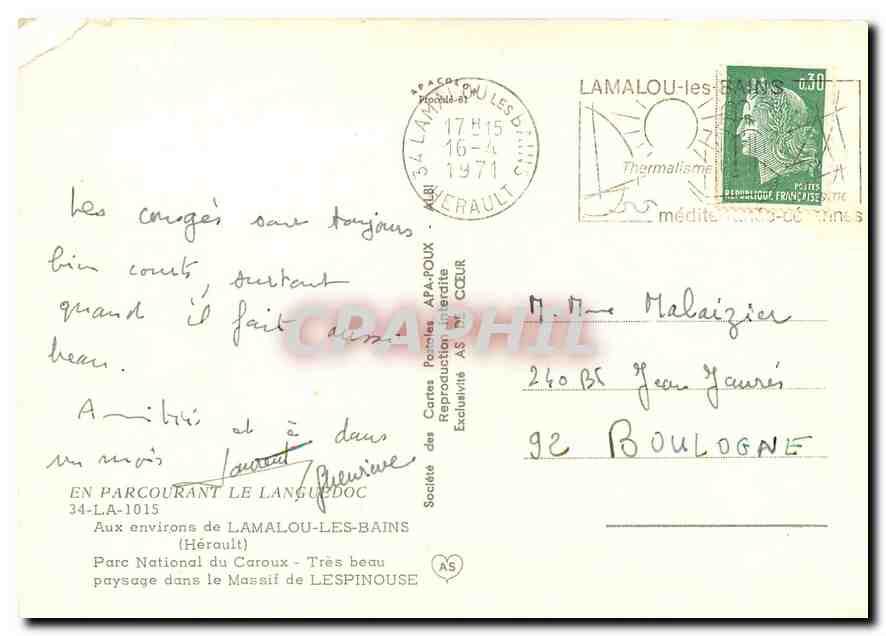 APACOLOR
Procédé-61
34 LAMALOU LES BAINS
17 H 15
16-4
1971
HERAULT
LAMALOU-les-BAINS
Thermalisme
méditerranéo-cévennes
0,30
POSTES
REPUBLIQUE FRANÇAISE
Les congés sont toujours
bien courts, surtout
quand il fait aussi
beau.
Amitiés et à dans
un mois
Laurent
Geneviève
EN PARCOURANT LE LANGUEDOC
34-LA-1015
Aux environs de LAMALOU-LES-BAINS
(Hérault)
Parc National du Caroux - Très beau
paysage dans le Massif de LESPINOUSE
Société des Cartes Postales APA-POUX - ALBI
Reproduction Interdite
Exclusivité AS DE CŒUR
AS
CPAPHIL
M. Mme Malaizier
240 Bd Jean Jaurès
92 BOULOGNE